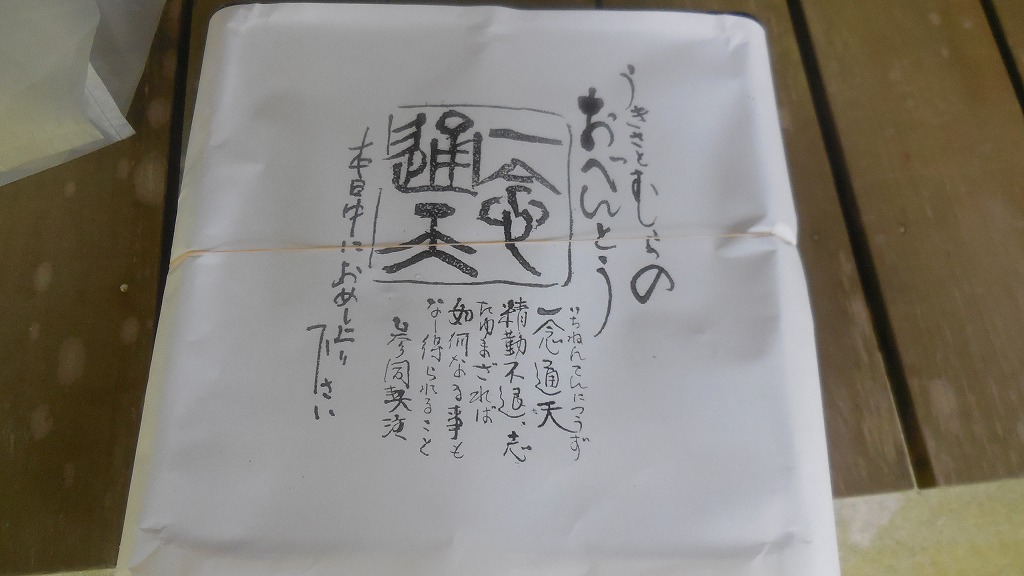 うきさとむらの
おべんとう
一念
通天
いちねんてんにつうず
一念通天
精勤不退、志
たゆまざれば
如何なる事も
なし得られること
参同契演
本日中におめし上り
下さい